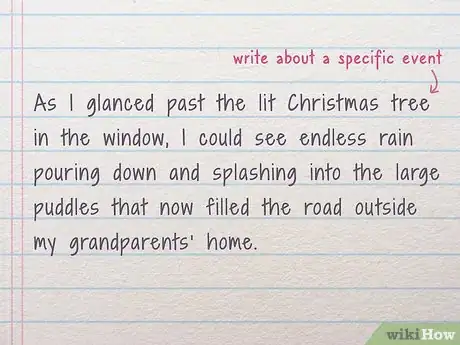 write about a specific event
As I glanced past the lit Christmas tree
in the window, I could see endless rain
pouring down and splashing into the large
puddles that now filled the road outside
my grandparents' home.
wikiHow